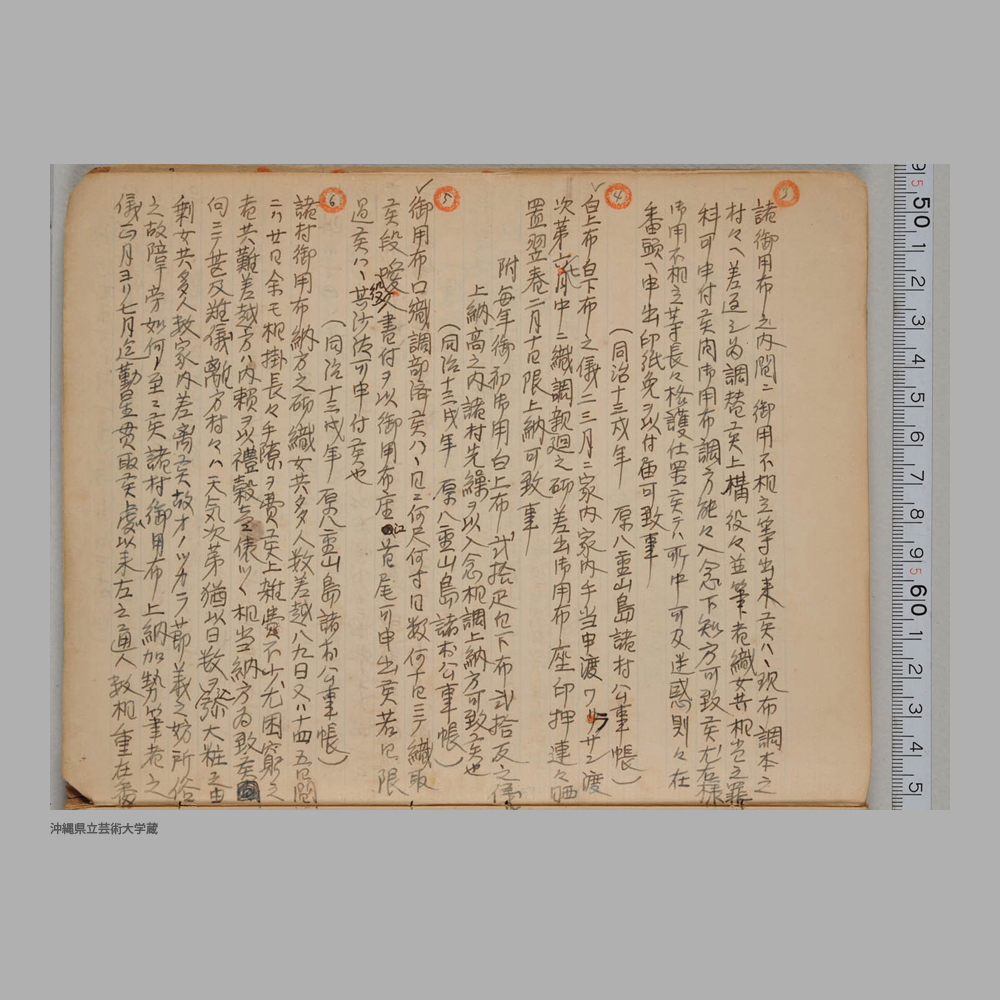 3
諸御用布之内間ニ御用不相立等出来候ハヽ現布調本之
村々へ差返シ為調替候上構役々並筆者織女共相当之罪
科可申付候間御用布調方能々入念下知方可致候尤右様
御用不相立等長々格護仕置候テハ所中可及迷惑則々在
番頭へ申出印紙免ヲ以付届可致事
(同治十三戌年 原八重山島諸村公事帳)
4
白上布白下布之儀二三月ニ家内家内手当申渡
次第六七月中ニ織調親廻之砌差出御用布座印押連々晒
置翌春二月十日限上納可致事
附毎年御初御用白上布弐拾疋白下布弐拾反之儀
上納高之内諸村先繰ヲ以入念相調上納方可致候也
(同治十三戌年 原八重山島諸村公事帳)
5
御用布口織調部済候ハヽ日ニ何尺何寸日数何十日ニテ織取
候段役人書付ヲ以御用布座江首尾可申出候若日限
過候ハヽ其沙汰可申付候也
(同治十三戌年 原八重山島諸村公事帳)
6
諸村御用布納方之砌織女共多人数差越八九日又ハ十四五日間
ニハ廿日余モ相掛長々手隙ヲ費候上雑費不少尤困窮之
者共難差越方ハ内頼ヲ以禮穀壱俵ツヽ相当納方為致候
向ニテ甚及難儀離方村々ハ天気次第猶以日数ヲ弥大粧之由
剰女共多人数家内差離候故ナノツカラ節義之妨所俗
之故障旁如何ニ至ニ候諸村御用布上納加勢筆者之
儀正月ヨリ七月迄勤星貫取候處以来左之通人数相重在番
沖縄県立芸術大学蔵